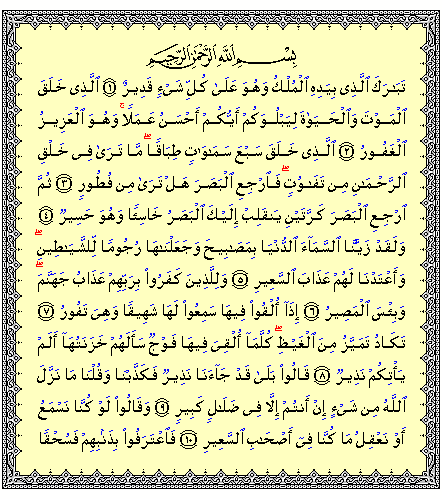 بِسْمِ اللَّهِ الرَّحْمَٰنِ الرَّحِيمِ
تَبَٰرَكَ ٱلَّذِى بِيَدِهِ ٱلْمُلْكُ وَهُوَ عَلَىٰ كُلِّ شَىْءٍ قَدِيرٌ ١ ٱلَّذِى خَلَقَ
ٱلْمَوْتَ وَٱلْحَيَوٰةَ لِيَبْلُوَكُمْ أَيُّكُمْ أَحْسَنُ عَمَلًا ۚ وَهُوَ ٱلْعَزِيزُ
ٱلْغَفُورُ ٢ ٱلَّذِى خَلَقَ سَبْعَ سَمَٰوَٰتٍ طِبَاقًا ۖ مَّا تَرَىٰ فِى خَلْقِ
ٱلرَّحْمَٰنِ مِن تَفَٰوُتٍ ۖ فَٱرْجِعِ ٱلْبَصَرَ هَلْ تَرَىٰ مِن فُطُورٍ ٣ ثُمَّ
ٱرْجِعِ ٱلْبَصَرَ كَرَّتَيْنِ يَنقَلِبْ إِلَيْكَ ٱلْبَصَرُ خَاسِئًا وَهُوَ حَسِيرٌ ٤
وَلَقَدْ زَيَّنَّا ٱلسَّمَآءَ ٱلدُّنْيَا بِمَصَٰبِيحَ وَجَعَلْنَٰهَا رُجُومًا لِّلشَّيَٰطِينِ ۖ
وَأَعْتَدْنَا لَهُمْ عَذَابَ ٱلسَّعِيرِ ٥ وَلِلَّذِينَ كَفَرُوا۟ بِرَبِّهِمْ عَذَابُ جَهَنَّمَ ۖ
وَبِئْسَ ٱلْمَصِيرُ ٦ إِذَآ أُلْقُوا۟ فِيهَا سَمِعُوا۟ لَهَا شَهِيقًا وَهِىَ تَفُورُ ٧
تَكَادُ تَمَيَّزُ مِنَ ٱلْغَيْظِ ۖ كُلَّمَآ أُلْقِىَ فِيهَا فَوْجٌ سَأَلَهُمْ خَزَنَتُهَآ أَلَمْ
يَأْتِكُمْ نَذِيرٌ ٨ قَالُوا۟ بَلَىٰ قَدْ جَآءَنَا نَذِيرٌ فَكَذَّبْنَا وَقُلْنَا مَا نَزَّلَ
ٱللَّهُ مِن شَىْءٍ إِنْ أَنتُمْ إِلَّا فِى ضَلَٰلٍ كَبِيرٍ ٩ وَقَالُوا۟ لَوْ كُنَّا نَسْمَعُ
أَوْ نَعْقِلُ مَا كُنَّا فِىٓ أَصْحَٰبِ ٱلسَّعِيرِ ١٠ فَٱعْتَرَفُوا۟ بِذَنۢبِهِمْ فَسُحْقًا